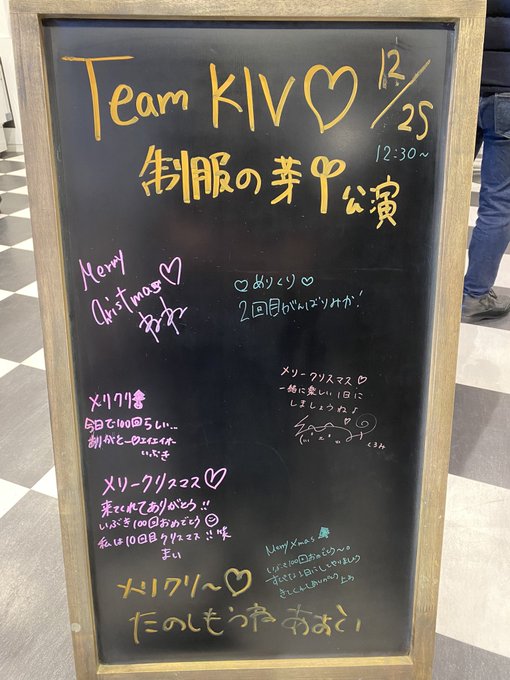 Team KIV♡
12/25
12:30~
制服の芽
公演
Merry
Christmas♡
♡めりくり♡
2回目がんばりみか!
メリークリスマス♡
一緒に楽しい1日に
しましょうね♪
くるみ
メリクリ
今日で100回らしい…
ありがと〜♡エイエイオー
いぶき
メリークリスマス♡
来てくれてありがとう!!
いぶき100回おめでとう
私は10回目クリスマス!!笑
まい
Merry Xmas
いぶき100回おめでと〜。
メリクリ〜♡
たのしもうね